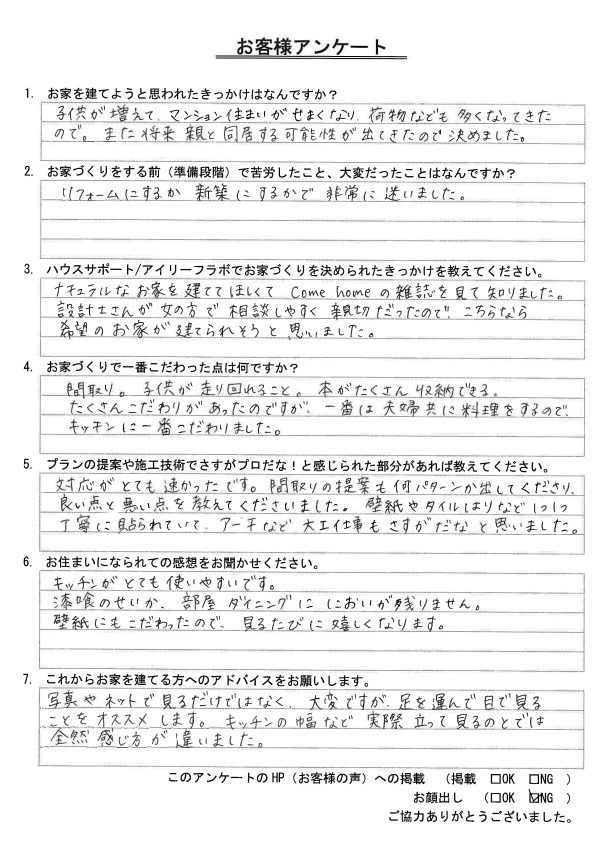 お客様アンケート
1. お家を建てようと思われたきっかけはなんですか？
子供が増えて、マンション住まいがせまくなり、荷物なども多くなってきた
ので。また将来親と同居する可能性が出てきたので決めました。
2. お家づくりをする前（準備段階）で苦労したこと、大変だったことはなんですか？
リフォームにするか新築にするかで非常に迷いました。
3. ハウスサポート/アイリーフラボでお家づくりを決められたきっかけを教えてください。
ナチュラルなお家を建ててほしくて Come homeの雑誌を見て知りました。
設計士さんが女の方で相談しやすく親切だったので、こちらなら
希望のお家が建てられそうと思いました。
4. お家づくりで一番こだわった点は何ですか？
間取り。子供が走り回れること。本がたくさん収納できる。
たくさんこだわりがあったのですが、一番は夫婦共に料理をするので、
キッチンに一番こだわりました。
5. プランの提案や施工技術でさすがプロだな！と感じられた部分があれば教えてください。
対応がとても速かったです。間取りの提案も何パターンか出してくださり、
良い点と悪い点を教えてくださいました。壁紙やタイルはりなど1つ1つ
丁寧に貼られていて、アーチなど大工仕事もさすがだなと思いました。
6. お住まいになられての感想をお聞かせください。
キッチンがとても使いやすいです。
漆喰のせいか、部屋ダイニングににおいが残りません。
壁紙にもこだわったので、見るたびに嬉しくなります。
7. これからお家を建てる方へのアドバイスをお願いします。
写真やネットで見るだけではなく、大変ですが、足を運んで目で見る
ことをオススメします。キッチンの幅など実際立って見るのとでは
全然感じ方が違いました。
このアンケートのHP（お客様の声）への掲載 （掲載 □OK □NG ）
お顔出し （□OK ☑NG ）
ご協力ありがとうございました。